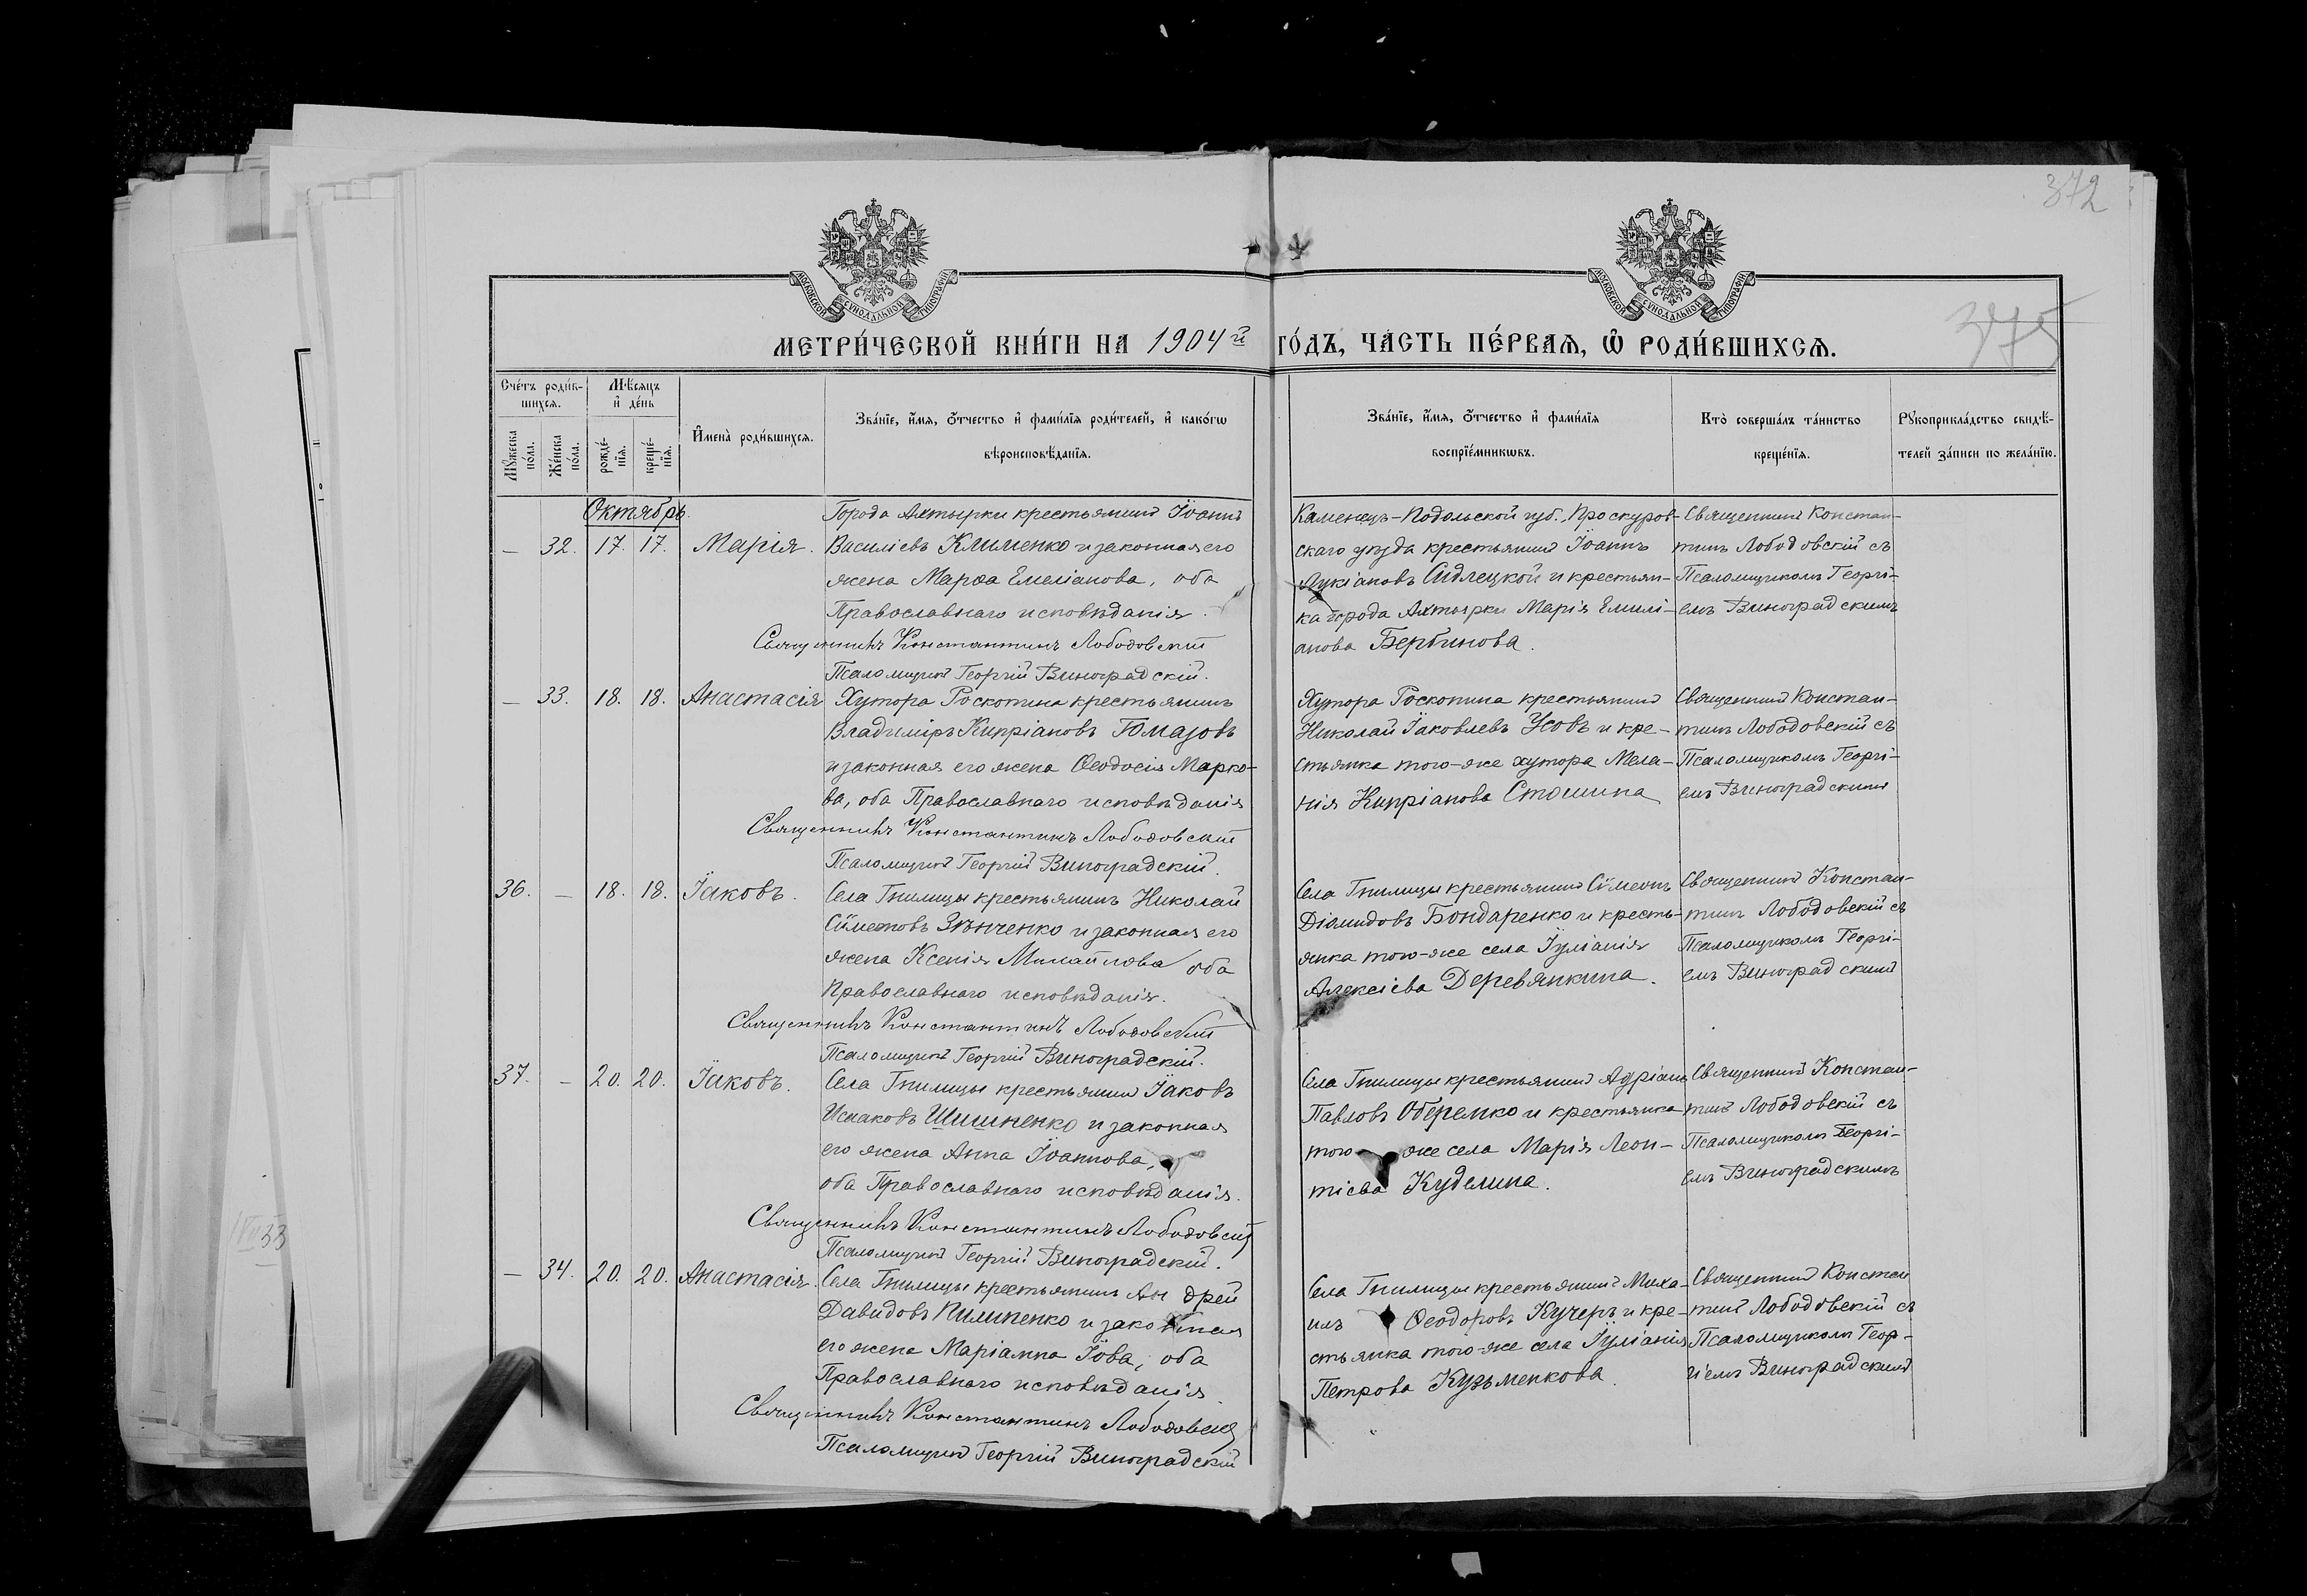 372
375
МОСКОВСКОЙ СУНОДАЛЬНОЙ ТИПОГРАФІИ
МОСКОВСКОЙ СУНОДАЛЬНОЙ ТИПОГРАФІИ
МЕТРИ́ЧЕСКОЙ КНИ́ГИ НА 1904й ГО́ДЪ, ЧА́СТЬ ПЕ́РВАѦ, Ѡ҆ РОДИ́ВШИХСѦ.
Сче́тъ роди́в-
шихсѧ.
Мꙋ́жеска по́ла.
Же́нска по́ла.
Мѣ́сѧцъ и҆ де́нь
рожде́-
нїѧ.
креще́-
нїѧ.
И҆мена̀ роди́вшихсѧ.
Зва́нїе, и҆́мѧ, ѻ҆́тчество и҆ фами́лїѧ роди́телей, и҆ како́гѡ
вѣроисповѣ́данїѧ.
Зва́нїе, и҆́мѧ, ѻ҆́тчество и҆ фами́лїѧ
воспрїе́мникѡвъ.
Кто̀ соверша́лъ та́инство
креще́нїѧ.
Рꙋкоприкла́дство свидѣ́-
телей за́писи по жела́нїю.
Октябрь.
— 32. 17. 17. Марія.
Города Ахтырки крестьянинъ Іоаннъ
Василіевъ Клименко и законная его
жена Марѳа Емеліанова, оба
Православнаго исповѣданія.
Священникъ Константинъ Лободовскій
Псаломщикъ Георгій Виноградскій.
Каменецъ-Подольской губ., Проскуров-
скаго уѣзда крестьянинъ Іоаннъ
Лукіановъ Сидлецкой и крестьян-
ка города Ахтырки Марія Емилі-
анова Бербинова.
Священникъ Констан-
тинъ Лободовскій съ
Псаломщикомъ Георгі-
емъ Виноградскимъ
— 33. 18. 18. Анастасія
Хутора Роскопина крестьянинъ
Владиміръ Кипріановъ Томазовъ
и законная его жена Ѳеодосія Марко-
ва, оба Православнаго исповѣданія
Священникъ Константинъ Лободовскій
Псаломщикъ Георгій Виноградскій.
Хутора Роскопина крестьянинъ
Николай Іаковлевъ Усовъ и кре-
стьянка того-же хутора Мела-
нія Кипріанова
Священникъ Констан-
тинъ Лободовскій съ
Псаломщикомъ Георгі-
емъ Виноградскимъ
36. — 18. 18. Іаковъ.
Села Гнилицы крестьянинъ Николай
Сѵмеоновъ Зѣнченко и законная его
жена Ксенія Михайлова оба
Православнаго исповѣданія.
Священникъ Константинъ Лободовскій
Псаломщикъ Георгій Виноградскій.
Села Гнилицы крестьянинъ Сѵмеонъ
Діомидовъ Бондаренко и кресть-
янка того-же села Іуліанія
Алексіева Деревянкина.
Священникъ Констан-
тинъ Лободовскій съ
Псаломщикомъ Георгі-
емъ Виноградскимъ
37. — 20. 20. Іаковъ.
Села Гнилицы крестьянинъ Іаковъ
Исааковъ Шишненко и законная
его жена Анна Іоаннова,
оба Православнаго исповѣданія.
Священникъ Константинъ Лободовскій
Псаломщикъ Георгій Виноградскій.
Села Гнилицы крестьянинъ Адріанъ
Павловъ Оберемко и крестьянка
того же села Марія Леон-
тіева Куделина.
Священникъ Констан-
тинъ Лободовскій съ
Псаломщикомъ Георгі-
емъ Виноградскимъ
— 34. 20. 20. Анастасія.
Села Гнилицы крестьянинъ Андрей
Давидовъ Пилипенко и законная
его жена Маріанна Іова, оба
Православнаго исповѣданія
Священникъ Константинъ Лободовскій
Псаломщикъ Георгій Виноградскій
Села Гнилицы крестьянинъ Миха-
илъ Ѳеодоровъ Кучеръ и кре-
стьянка того-же села Іуліанія
Петрова Кузьменкова.
Священникъ Констан
тинъ Лободовскій съ
Псаломщикомъ Геор-
гіемъ Виноградскимъ